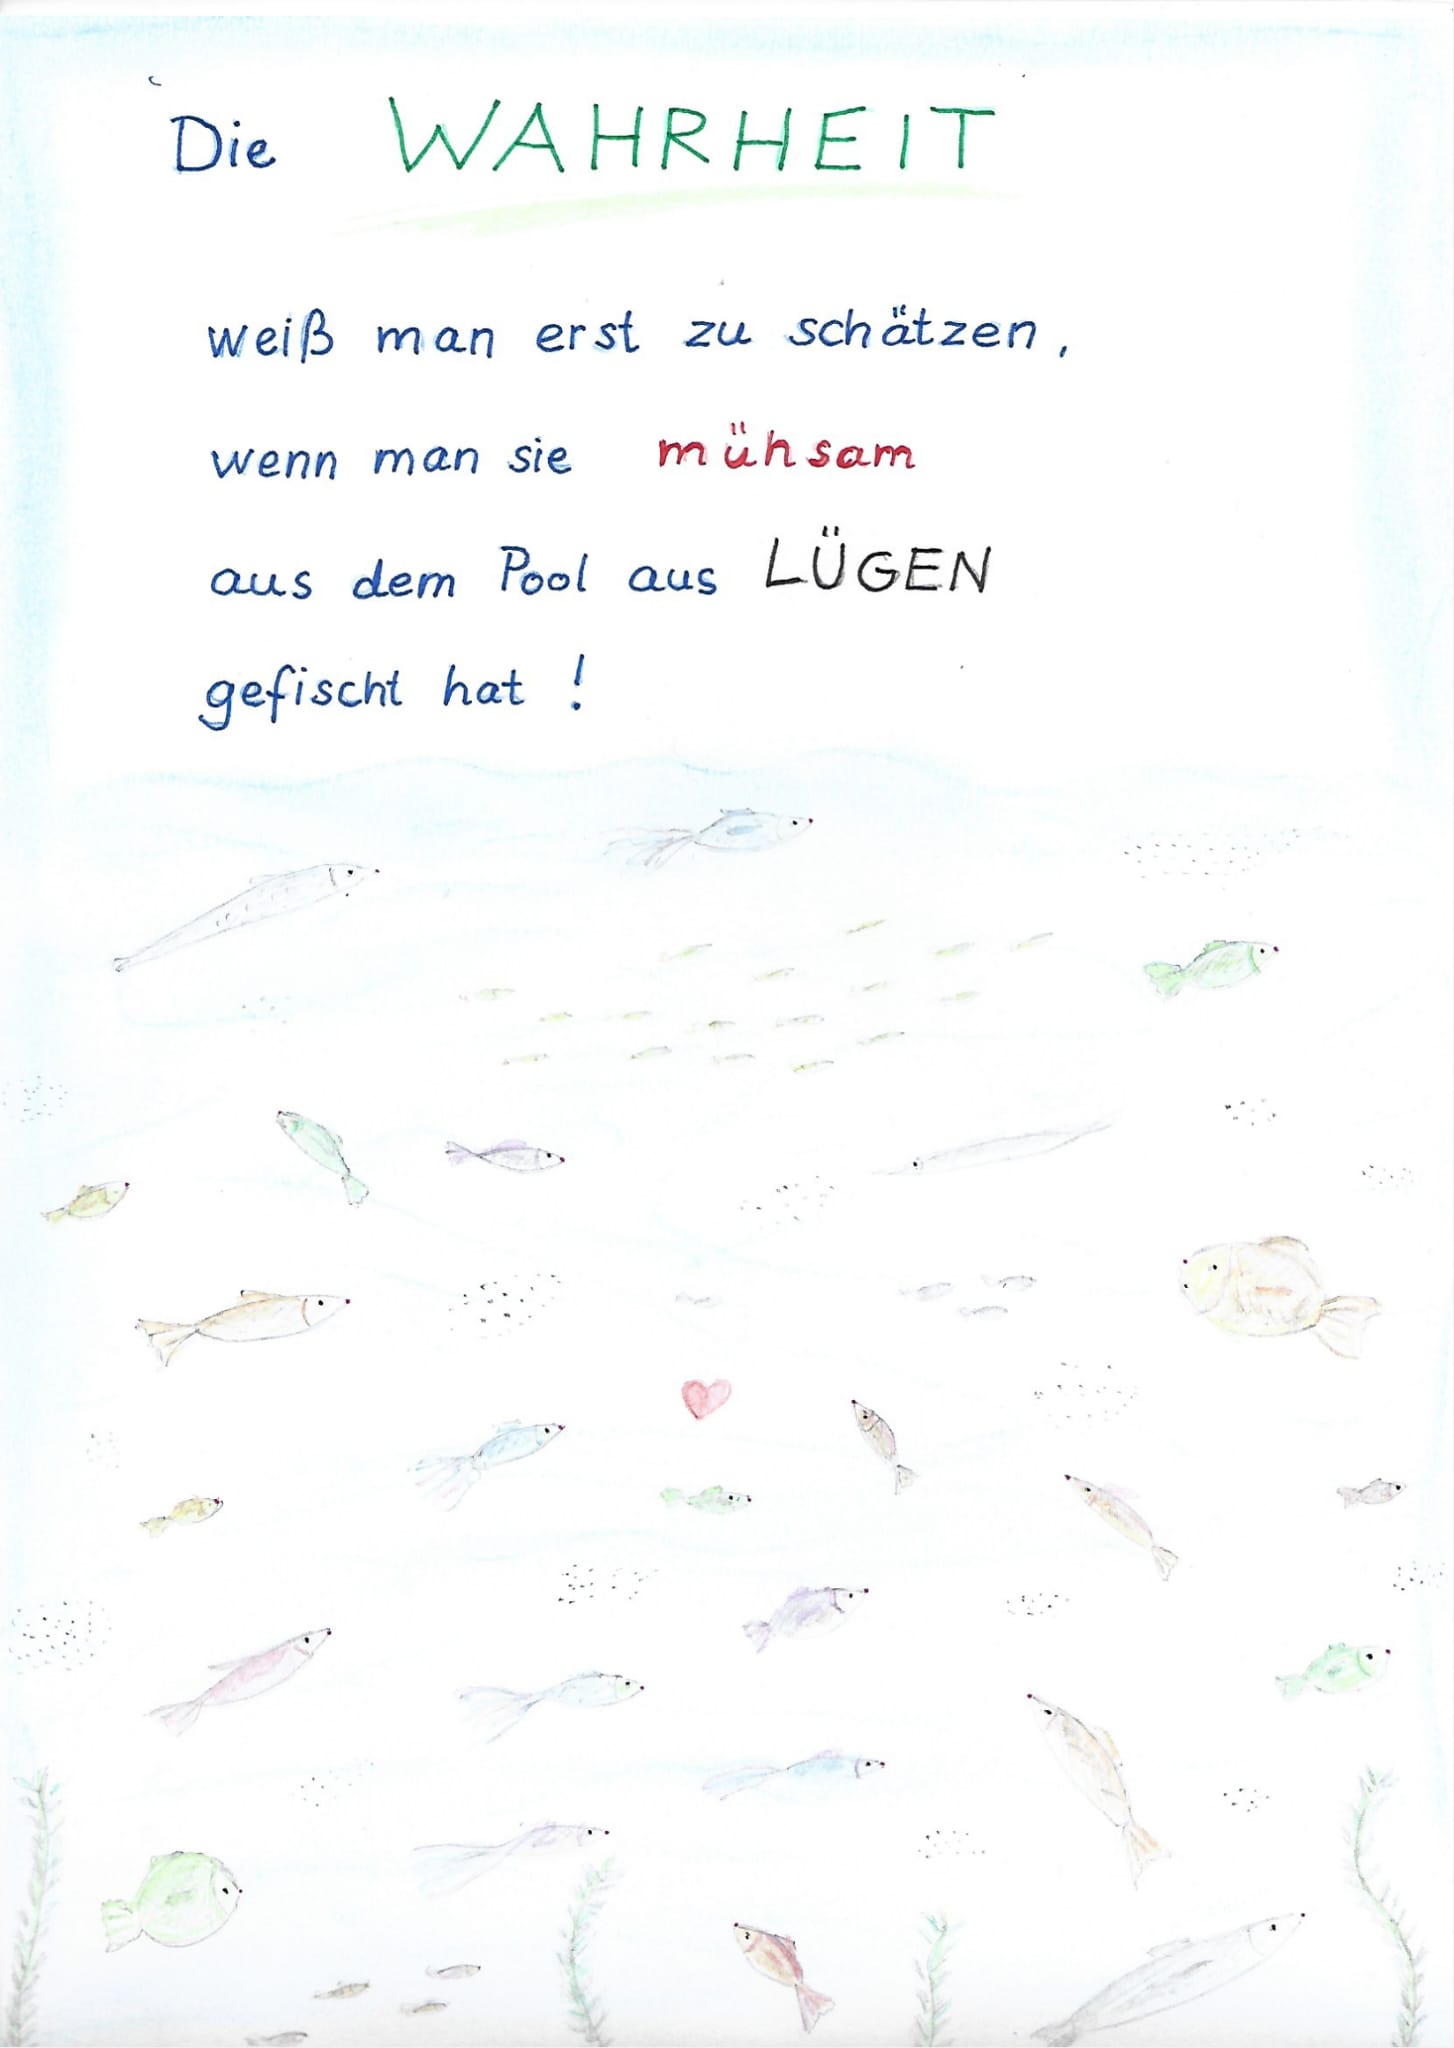 Die WAHRHEIT
weiß man erst zu schätzen,
wenn man sie mühsam
aus dem Pool aus LÜGEN
gefischt hat !